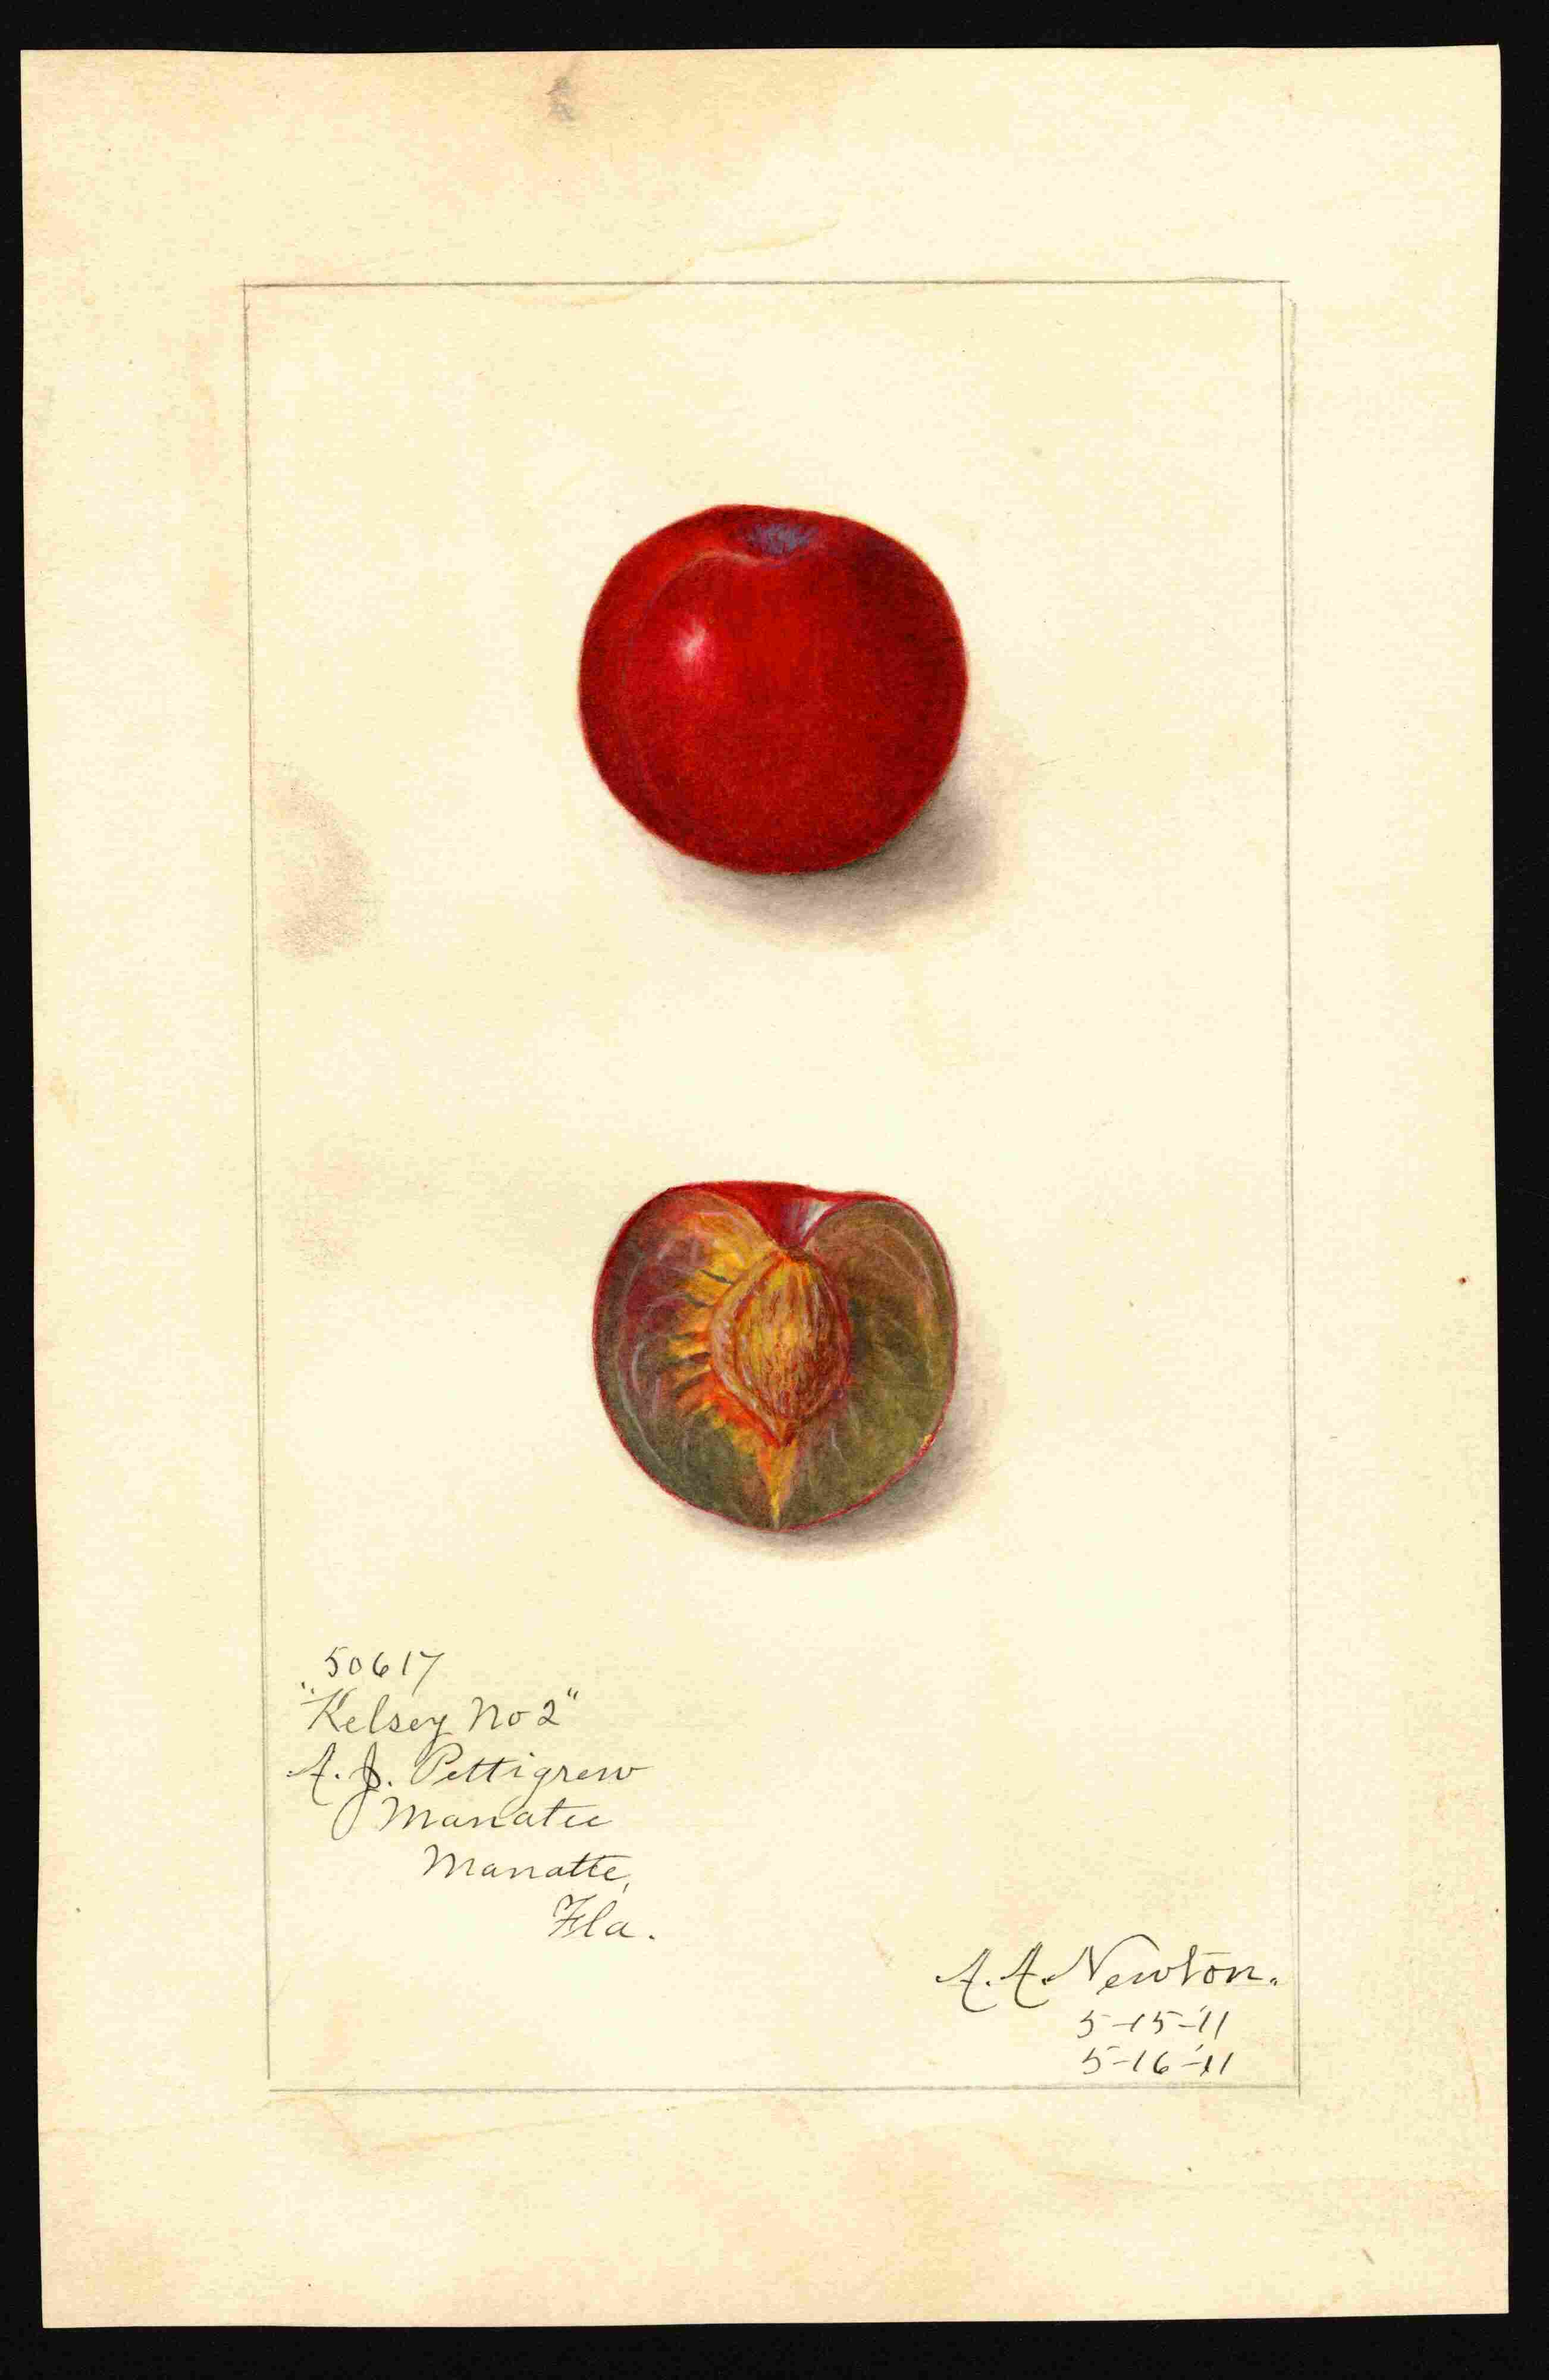 50617
"Kelsey No 2"
A. J. Pettigrew
Manatee
Manatte,
Fla.
A. A. Newton.
5-15-'11
5-16-'11